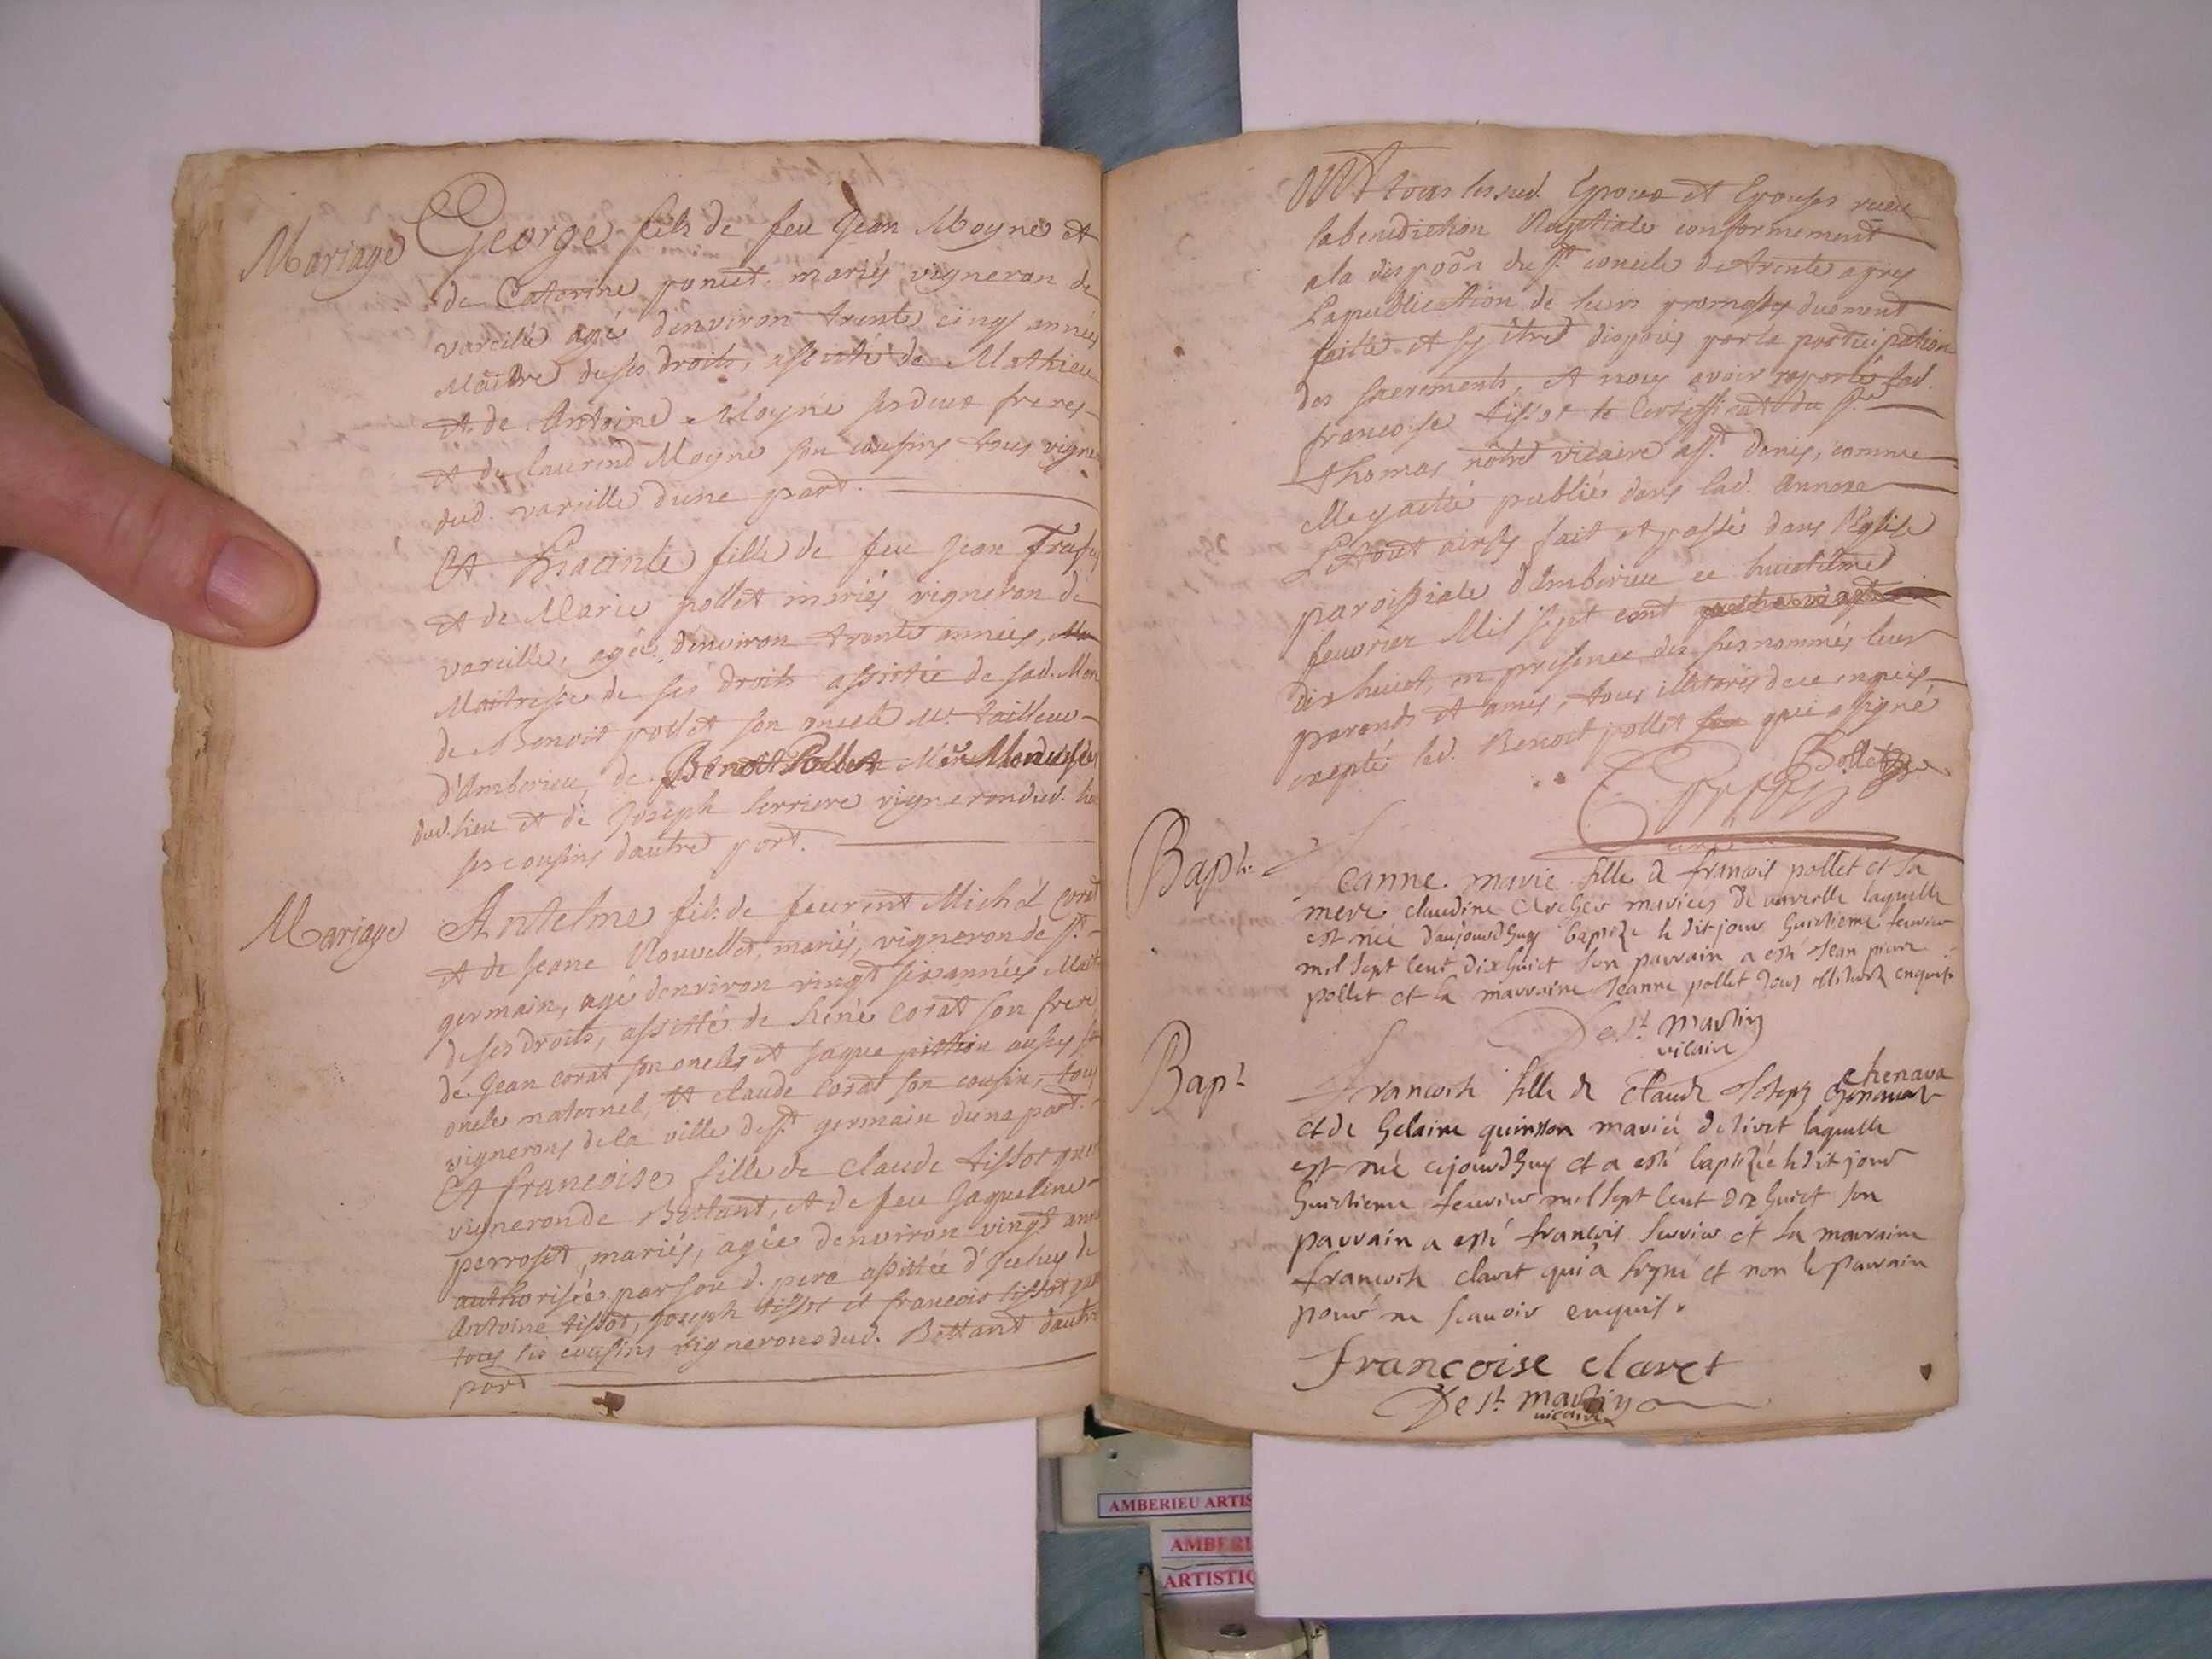 Mariage
George fils de feu Jean Moyne et
de Caterine poncet mariés, vigneron de
vareille agé denviron trente cinq années
Maitre de ses droits, assisté de Mathieu
et de Antoine Moyne ses deux freres
et de laurend Moyne son cousins tous vigne
dud. vareille dune part.
Et hiacinte fille de feu Jean
et de Marie pollet mariés vigneron de
vareille, agée denviron trente années,
Maitresse de ses droits assistée de sad. Mere
de Benoit pollet son oncle Mr. tailleur
d'Amberieu, de Benoit Pollet Mr. Menuisier
dud. lieu et de Joseph serriere vigneron dud. lieu
ses cousins dautre part.
Mariage
Antelme fils de feu Michel Corat
et de Jeane Nouvellet, mariés, vigneron de st.
germain, agé denviron vingt six années Mait
de ses droits, assisté de Réné Corat son frere
de Jean corat son oncle et Jaque pithion aussy son
oncle maternel, et claude corat son cousin, tous
vignerons de la ville de st. germain dune part.
Et francoise fille de Claude tissot
vigneron de Bettant, et de feu Jaqueline
perroset, mariés, agée denviron vingt ans
authorisée par son d. pere assistée d'Iceluy de
Antoine tissot, Joseph tissot et francois tissot
tous ses cousins vignerons dud. Bettant dautre
part
Ont tous les sud. Epoux et Epouses receu
la benediction Nuptiale conformement
a la dispoõn du st. concile de trente apres
La publication de leurs promesses duement
faitte et sy être disposés par la participation
des sacrements, et nous avoir raporté lad.
francoise tissot le Certifficat du sr.
thomas nôtre vicaire a st. denis, comme
elle y a êté publiée dans lad. Annexe
Le tout ainsy fait et passé dans l'Eglise
paroissiale d'Amberieu ce huictième
feuvrier Mil sept cent
dix huict, en presence des susnommés leurs
parends et amis, tous illiterés de ce enquis
excepté led. Benoit pollet qui a signé
Pollet
curé
Bapt.
Jeanne marie fille de francois pollet et sa
mere claudine mariées de vareille laquelle
est née daujourdhuy baptizé le dit jour huictieme feuvrier
mil sept cent dix huict son parrain a esté Jean pierre
pollet et la marraine Jeanne pollet tous illiterés enquis
De st. martin
vicaire
Bapt.
Francoise fille de Claude Joseph chenava
et de helaine quinson marié de tiret laquelle
est née cejourdhuy et a esté baptizée le dit jour
huictieme feuvrier mil sept cent dix huict son
parrain a esté francois servier et la marraine
francoise claret qui a signé et non le parrain
pour ne scauoir enquis.
francoise claret
De st. martin
vicaire
AMBERIEU ARTIS
AMBERI
ARTISTIQ